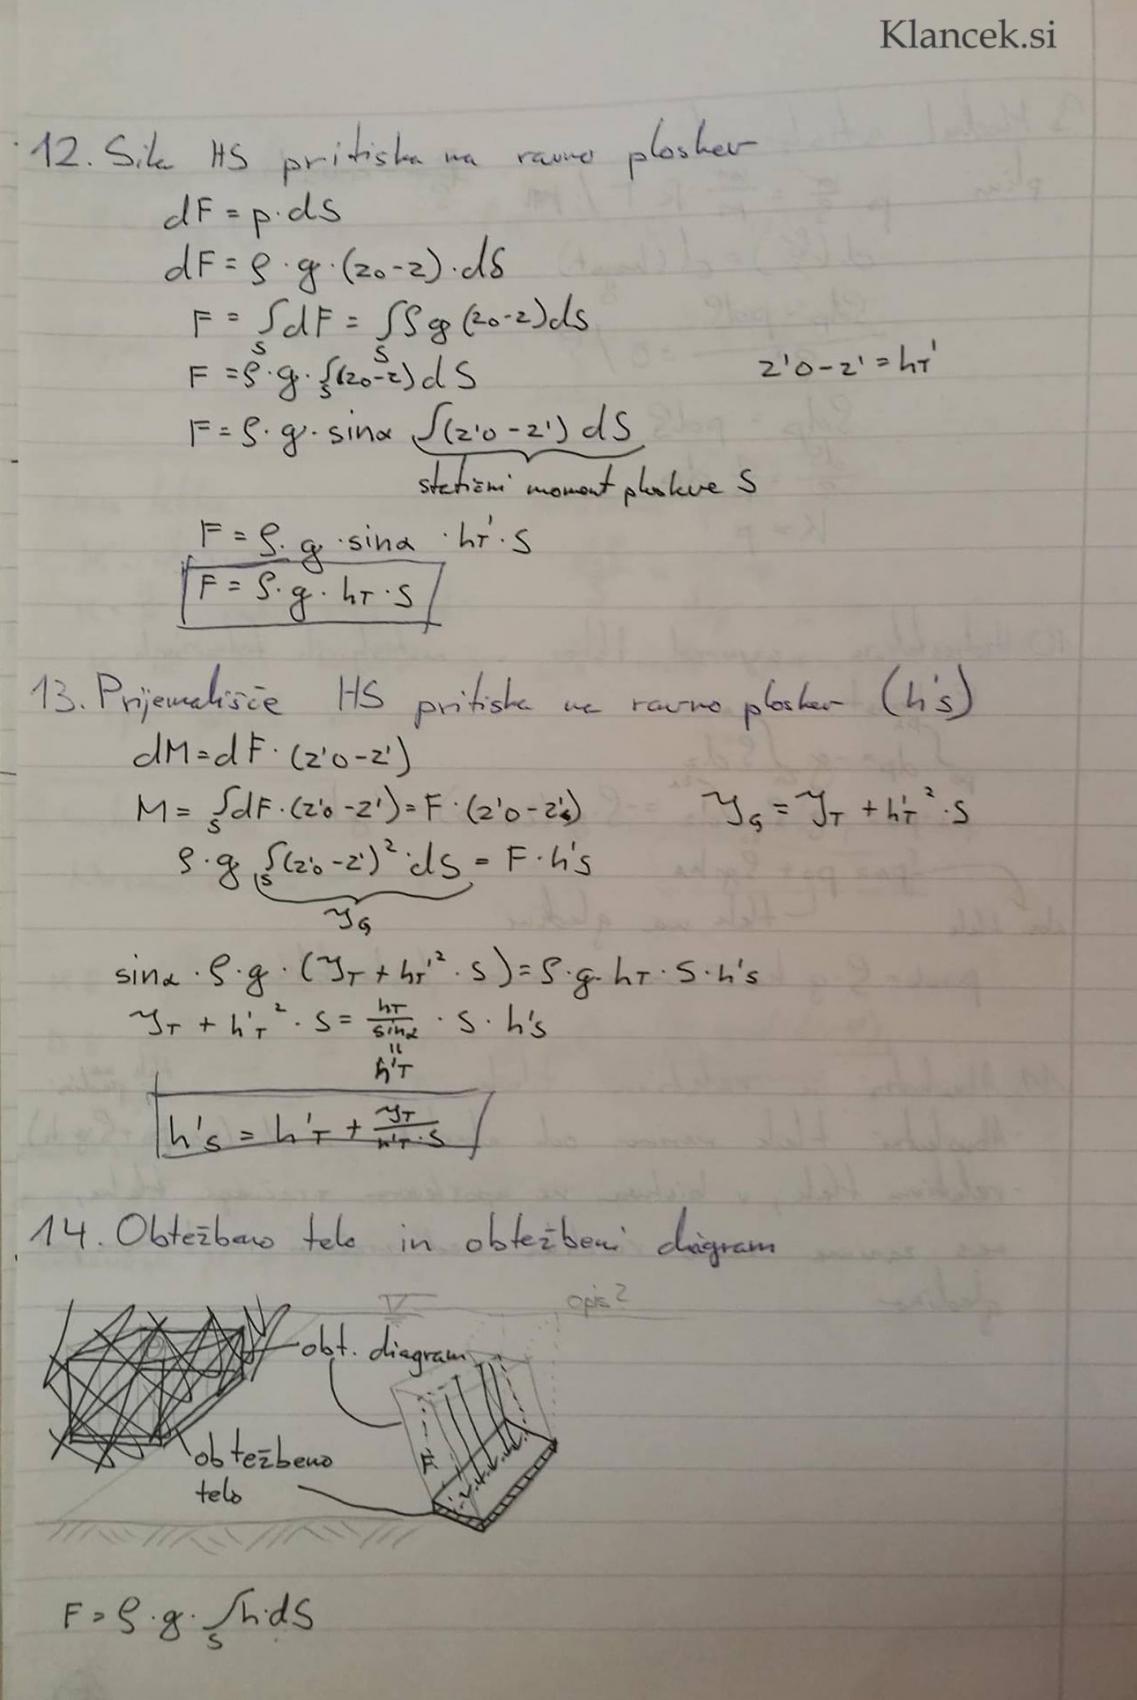 Klancek.si
12. Sila HS pritiska na ravno ploskev
dF = p·dS
dF = ρ·g·(z0-z)·dS
F = ∫S dF = ∫S ρg(z0-z)dS
F = ρ·g·∫S(z0-z)dS
z'0-z' = hT'
F = ρ·g·sinα ∫(z'0-z') dS
statični moment ploskve S
F = ρ·g·sinα·hT'·S
F = ρ·g·hT·S
13. Prijemališče HS pritiska na ravno ploskev (h's)
dM = dF·(z'0-z')
M = ∫S dF·(z'0-z') = F·(z'0-z's)
yG = yT + h'T²·S
ρ·g ∫S(z'0-z')²·dS = F·h's
yG
sinα·ρ·g·(yT + hT'²·S) = ρ·g·hT·S·h's
yT + h'T²·S = hT/sinα·S·h's
=
h'T
h's = h'T + yT/h'T·S
14. Obtežbeno telo in obtežbeni diagram
opis?
obt. diagram
F
obtežbeno
telo
F = ρ·g·∫S h·dS